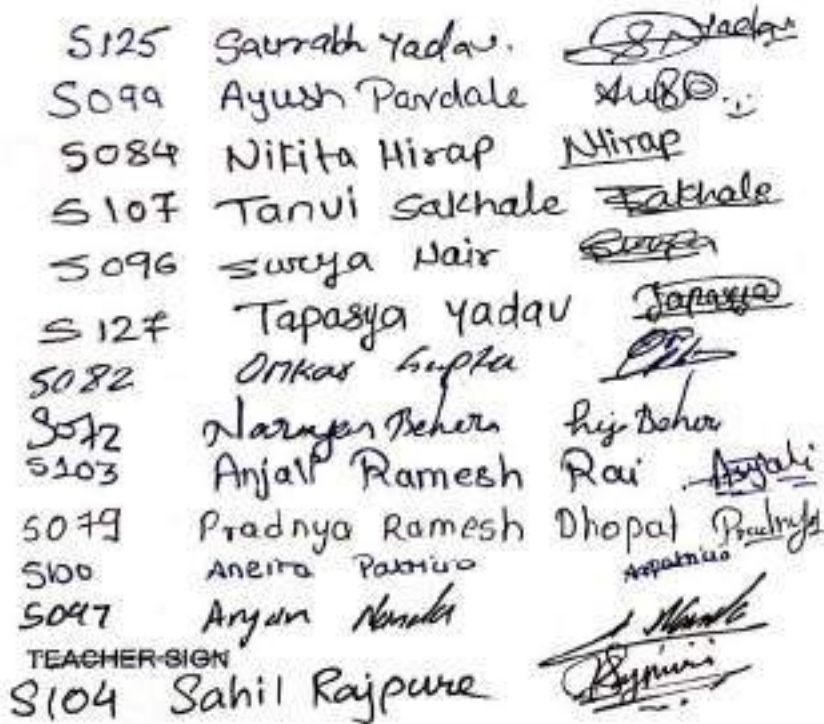 S125 Saurabh Yadav. S Yadav
S099 Ayush Pardale
S084 Nikita Hirap NHirap
S107 Tanvi Sakhale Sakhale
S096 Surya Nair Surya
S127 Tapasya Yadav Tapasya
S082 Omkar Gupta
S072 Narayan Behera Behera
S103 Anjali Ramesh Rai Anjali
S079 Pradnya Ramesh Dhopat Pradnya
S100 Aneira
S097 Aryan
TEACHER SIGN
S104 Sahil Rajpure